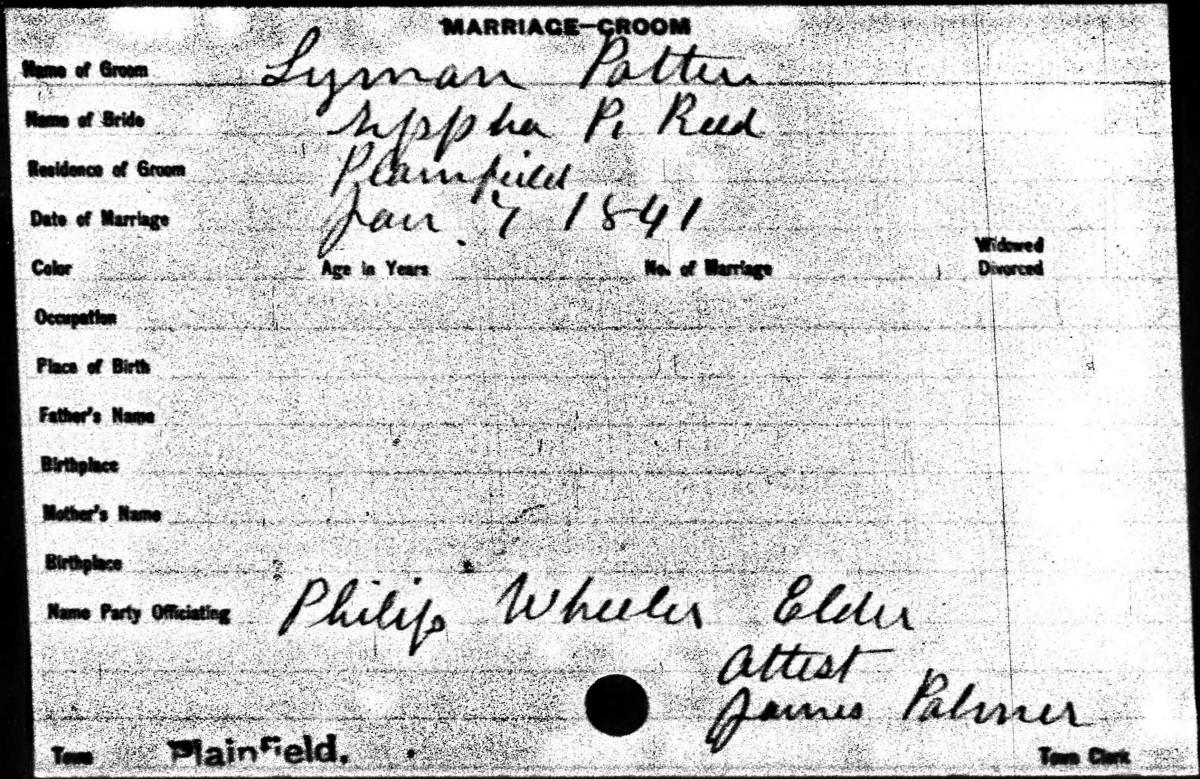 MARRIAGE—GROOM
Name of Groom Lyman Potter
Name of Bride P. Reed
Residence of Groom Plainfield
Date of Marriage Jan. 7 1841
Color Age in Years No. of Marriage Widowed Divorced
Occupation
Place of Birth
Father's Name
Birthplace
Mother's Name
Birthplace
Name Party Officiating Philip Wheeler Elder
Attest
James Palmer
Town Plainfield. Town Clerk